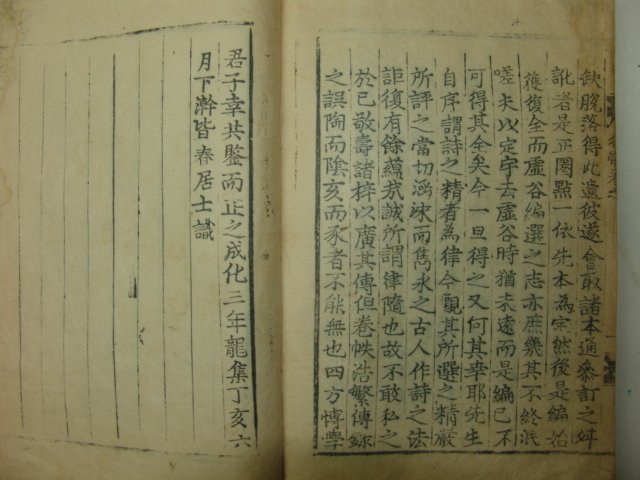 缺脫落得此遺彼遂會取諸本通叅訂之舛
訛者是正圏點一依先本為定然後是編始
獲復全而虛谷編選之志亦庶幾其不終泯
嗟夫以定宇去虛谷時猶未遠而是編已不
可得其全矣今一旦得之又何其幸耶先生
自序謂詩之精者為律今觀其所選之精嚴
所評之當切涵泳而雋永之古人作詩之法
詎復有餘蘊㢤誠所謂律髓也故不敢私之
於己敬壽諸梓以廣其傳但卷帙浩繁傳錄
之誤陶而陰亥而豕者不能無也四方博學
君子幸共鑒而正之成化三年龍集丁亥六
月下澣皆春居士識